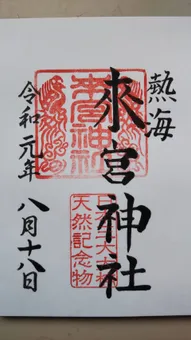 熱海
來宮神社
令和元年
八月十八日
來宮神社
天然記念物